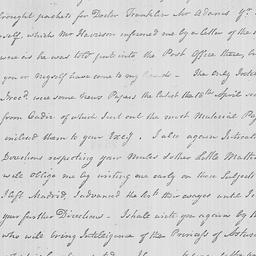 brought packets for Doctor Franklin Mr Adams Yr
self, which Mr Harrison informed me by a letter of the
were as he was told put into the Post Office there, bu
you or myself have come to my hands - The only Intel
Irec'd. were some News Papers the last the 10th April
from Cadiz of which I cut out the most Material Pa
inclosed them to your Excy. I also again Intreat
Directions respecting your Mules & other little Matter
will oblige me by writing me early on those Subjects
I left Madrid, I advanced the wages until I
your further Directions - I shall write you again by th
who will bring Intelligence of the Princess of Asturi